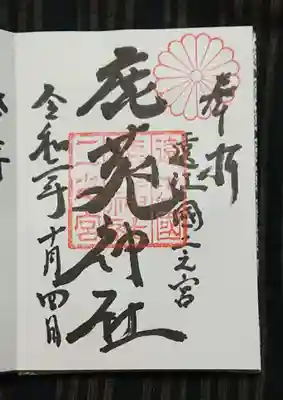 奉拝
遠江國二之宮
鹿苑神社
令和二年十月四日